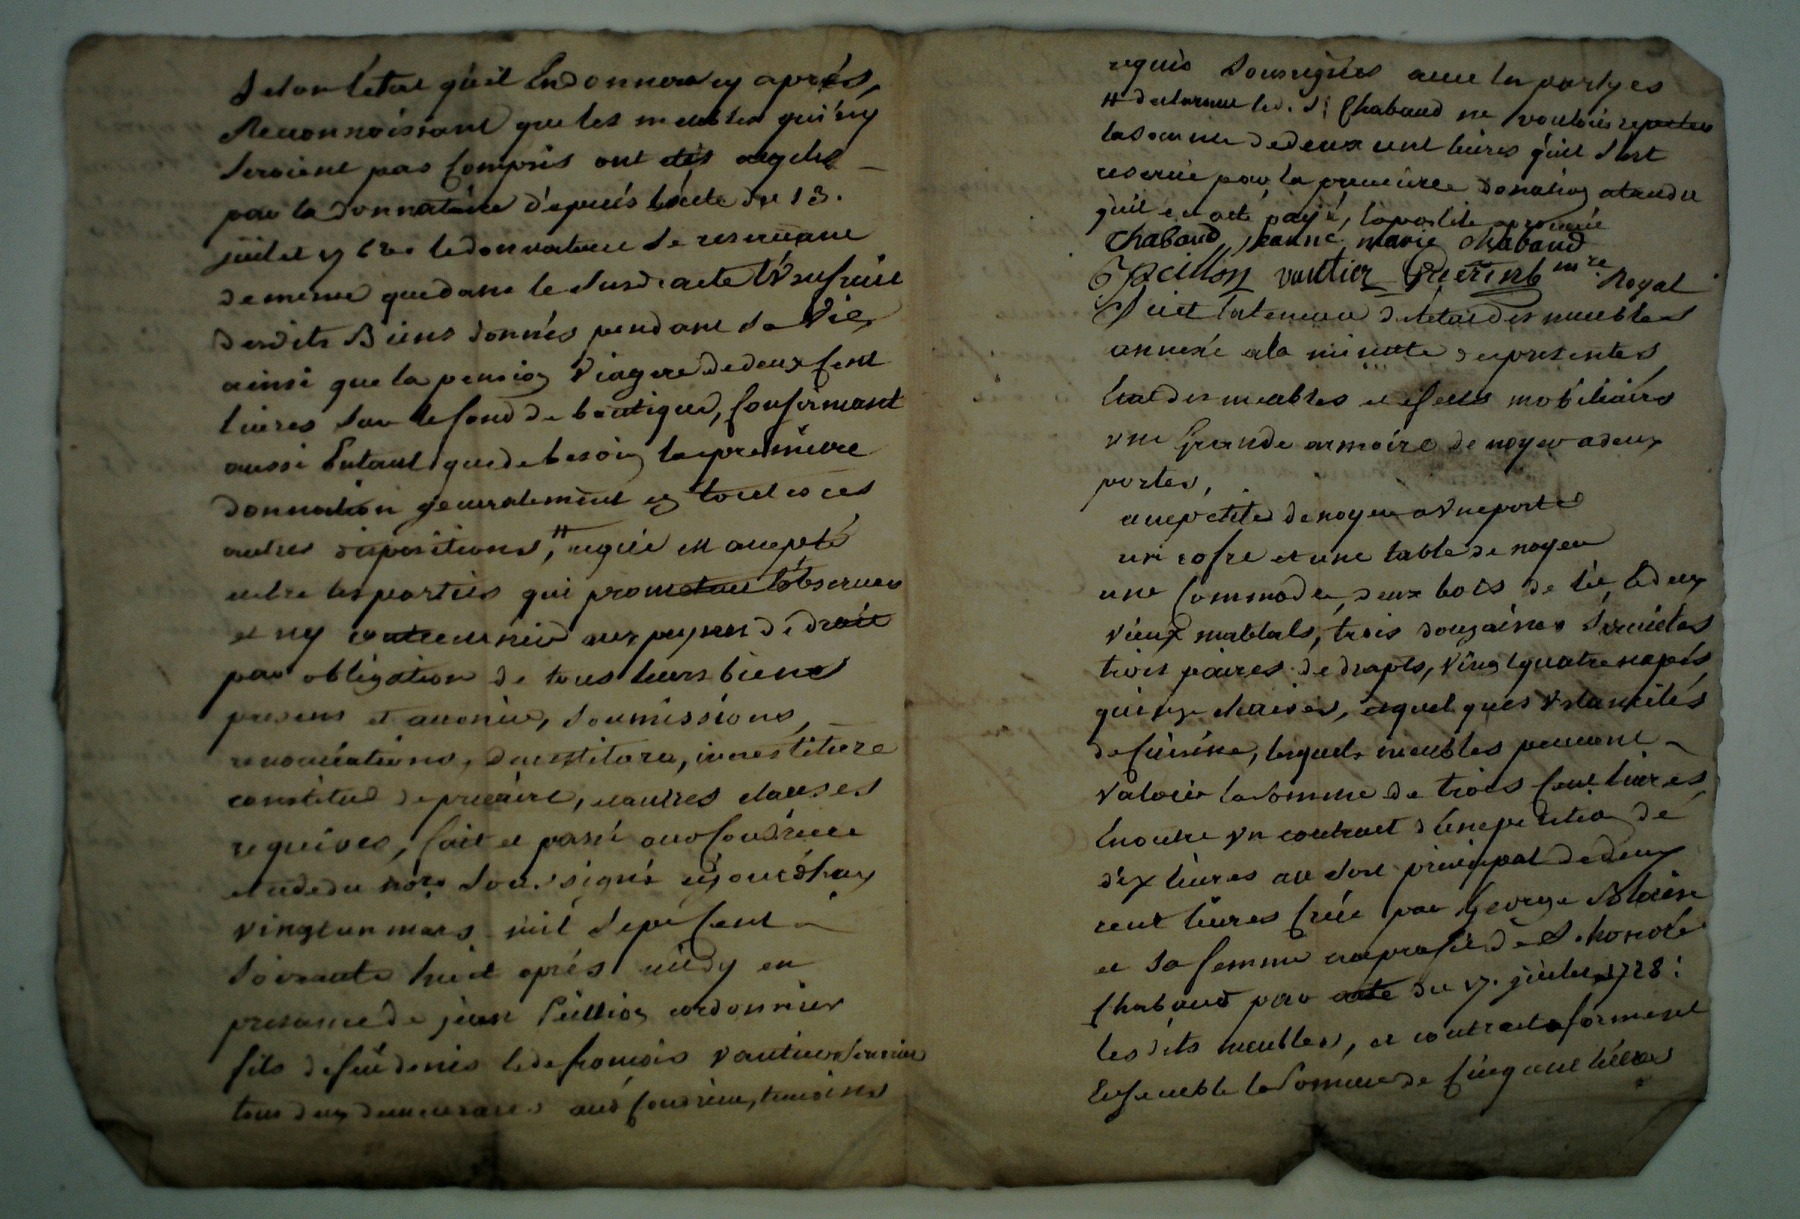 Selon létat quil En donnera cy aprés,
Reconnoissant que les meubles qui ny
Seroient pas Compris ont etés acquis
par la donnataire dépuis lácte du 13.
juillet le donnateur Se reservant
de meme que dans le Susd. acte lVsufruit
desdits Biens donnés pendant Sa Vie
ainsi que la pension Viagere de deux Cent
livres Sur le fond de boutique, Confirmant
aussi Entant que de besoin la premiere
donnation generalement en toutes ces
autres dispositions, # acepté
entre les parties qui prometent lóbserver
et ny contrevenir aux peynes de droit
par obligation de tous leurs biens
presens et avenir, Soumissions,
renonciations, dessaisiture, investiture
constitut de précaire, et autres clauses
requises, fait et passé
etude du nore Soussigné cejourdhuy
vingt un mars mil Sept Cent
Soixante huit aprés midy en
presence de jean cordonnier
fils de feu denis et de francois Vautier
tous deux demeurants temoins
requis Soussignés avec les partyes
# declarant led. Sr Chabaud ne vouloir repeter
la Somme de deux cent livres quil Sest
reservée par la premiere donation atandu
quil en a eté payé, lapostile aprouvée
Chabaud, jeanne marie Chabaud
vautier Guerin nre Royal
Suit la teneur de létat des meubles
annexé a la minute des presentes
Etat des meubles et efects mobiliáirs
vne Grande armoire de noyer a deux
portes,
une petite de noyer a Vne porte
un cofre et une table de noyer
une Commode, deux bois de lit, et deux
vieux matlats, trois douzaines Servietes
trois paires de drapts, Vingt quatre napés
quinze chaises, et quelques Vstancilés
de Cuisine, lesquels meubles peuvent
Valoir la Somme de trois Cent livres
En outre vn contract de
dix livres au Sort principal de deux
cent livres Créé par George Blain
et Sa femme au profit de S. honoré
Chabaud par acte du 17. juillet 1728:
les dits meubles, et contract forment
Ensemble la Somme de Cinq Cent livres